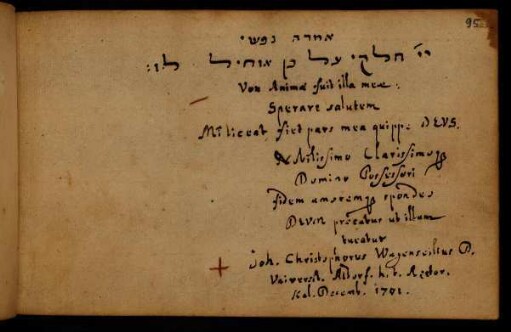 95.
אמרה נפשי
יי׳ חלקי על כן אוחיל לו:
Vox Animæ fuit illa meæ:
Sperare salutem
Mî liceat fiet pars mea quippe DEVS.
Nobilissimo Clarissimoqꝫ
Domino Possessori
fidem amoremqꝫ spondeo
DEVM precatus ut illum
tueatur
Joh. Christophorus Wagenseilius D.
Universit. Altdorf. h. t. Rector.
Kal. Decemb. 1701.